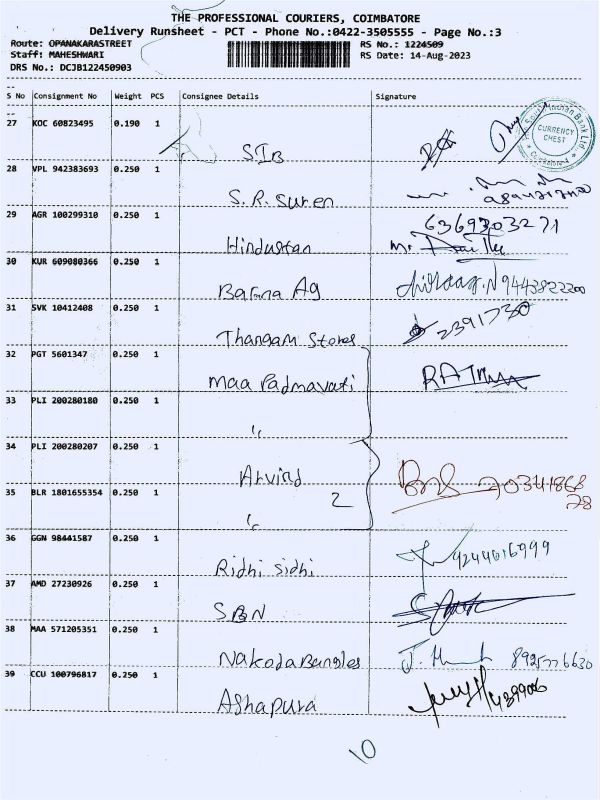 THE PROFESSIONAL COURIERS, COIMBATORE
Delivery Runsheet - PCT - Phone No.:0422-3505555 - Page No.:3
Route: OPANAKARASTREET RS No.: 1224509
Staff: MAHESHWARI RS Date: 14-Aug-2023
DRS No.: DCJB122450903
S No Consignment No Weight PCS Consignee Details Signature
27 KOC 60823495 0.190 1
SIB
Indian Bank Ltd.
CURRENCY
CHEST
28 VPL 942383693 0.250 1
S.R. Suren
29 AGR 100299310 0.250 1
Hindustan 6369303271
30 KUR 609080366 0.250 1
Bafna Ag 9443822200
31 SVK 10412408 0.250 1
Thangam Stores 2391730
32 PGT 5601347 0.250 1
Maa Padmavati
33 PLI 200280180 0.250 1
"
34 PLI 200280207 0.250 1
Arvind
35 BLR 1801655354 0.250 1 2
"
36 GGN 98441587 0.250 1
Ridhi sidhi 9244616999
37 AMD 27230926 0.250 1
SBN
38 MAA 571205351 0.250 1
Nakoda Bangles 8925776630
39 CCU 100796817 0.250 1
Ashapura
10